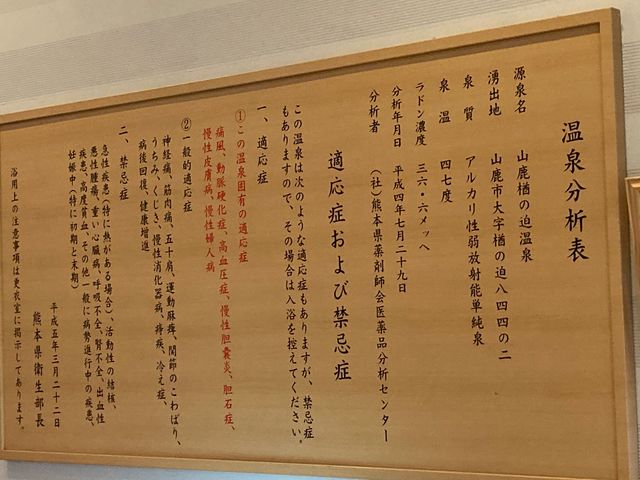 温泉分析表
源泉名　山鹿楢の迫温泉
湧出地　山鹿市大字楢の迫八四四の二
泉質　アルカリ性弱放射能単純泉
泉温　四七度
ラドン濃度　三六・六メッヘ
分析年月日　平成四年七月二十九日
分析者　（社）熊本県薬剤師会医薬品分析センター
適応症および禁忌症
この温泉は次のような適応症もありますが、禁忌症
もありますので、その場合は入浴を控えてください。
一、適応症
①この温泉固有の適応症
痛風、動脈硬化症、高血圧症、慢性胆嚢炎、胆石症、
慢性皮膚病、慢性婦人病
②一般的適応症
神経痛、筋肉痛、五十肩、運動麻痺、関節のこわばり、
うちみ、くじき、慢性消化器病、痔疾、冷え症、
病後回復、健康増進
二、禁忌症
急性疾患（特に熱がある場合）、活動性の結核、
悪性腫瘍、重い心臓病、呼吸不全、腎不全、出血性
疾患、高度貧血、その他一般に病勢進行中の疾患、
妊娠中（特に初期と末期）
平成五年三月二十二日
熊本県衛生部長
浴用上の注意事項は更衣室に掲示してあります。